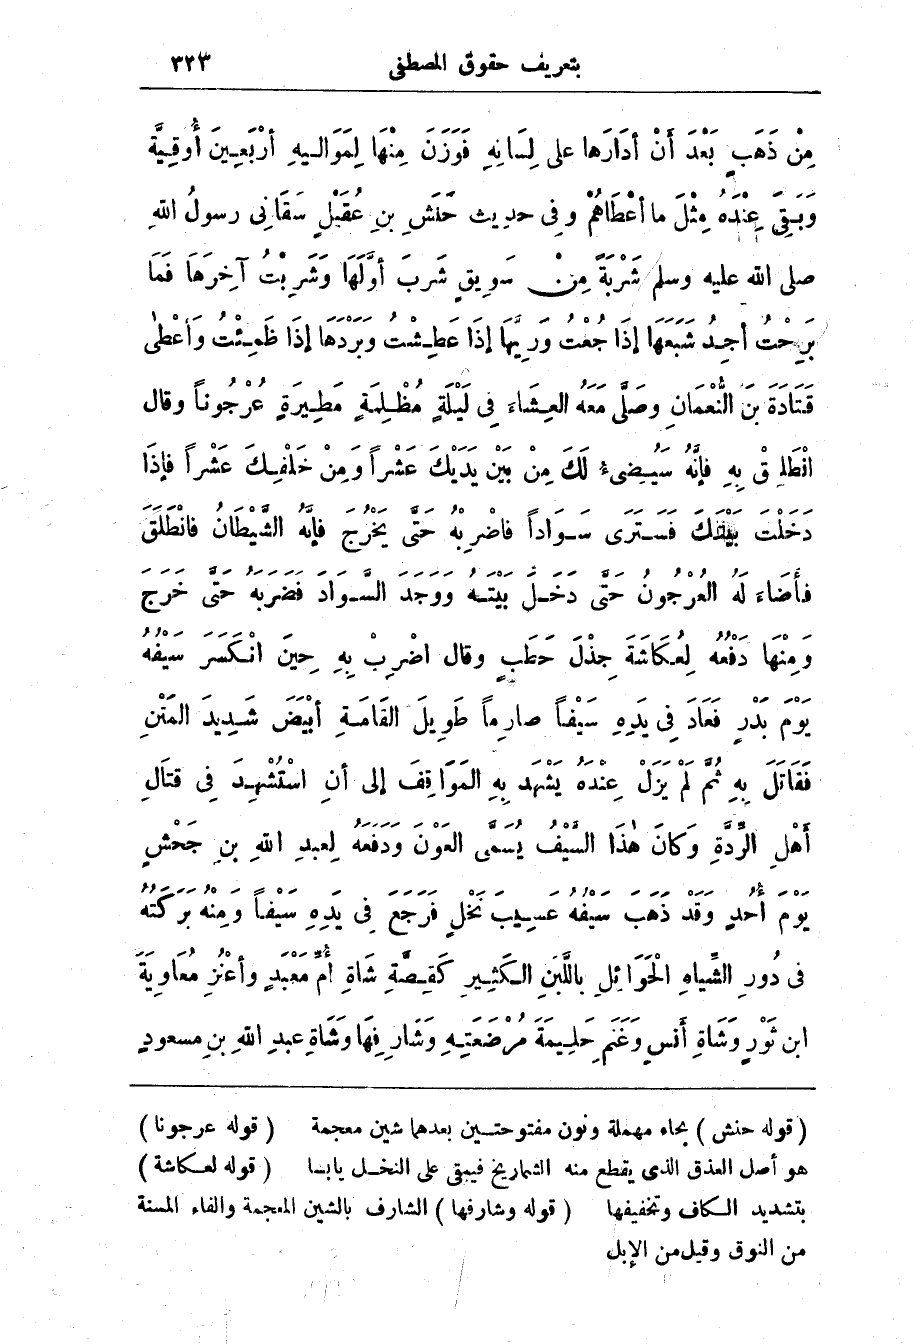 بتعريف حقوق المصطفى ٣٢٣
مِنْ ذَهَبٍ بَعْدَ أَنْ أدَارَها على لِسَانِهِ فَوَزَنَ مِنْهَا لِمَوَالِيهِ أرْبَعِينَ أُوقِيَّةً
وَبَقِيَ عِنْدَهُ مِثْلَ ما أعْطَاهُمْ وفى حديث حَنَشِ بنِ عُقَيْلٍ سَقَانِى رسولُ اللهِ
صلى الله عليه وسلم شَرْبَةً مِنْ سَوِيقٍ شَرِبَ أوَّلَهَا وَشَرِبْتُ آخِرَهَا فَمَا
بَرِحْتُ أجِدُ شِبَعَهَا إذَا جُعْتُ وَرِيَّهَا إذَا عَطِشْتُ وَبَرْدَهَا إذَا ظَمِئْتُ وَأعْطَى
قَتَادَةَ بنَ النُّعْمَانِ وصَلَّى مَعَهُ العِشَاءَ فِى لَيْلَةٍ مُظْلِمَةٍ مَطِيرَةٍ عُرْجُوناً وقال
انْطَلِقْ بِهِ فإنَّهُ سَيُضِىءُ لَكَ مِنْ بَيْنِ يَدَيْكَ عَشْراً وَمِنْ خَلْفِكَ عَشْراً فإذَا
دَخَلْتَ بَيْتَكَ فَسَتَرَى سَوَاداً فاضْرِبْهُ حَتَّى يَخْرُجَ فإنَّهُ الشَّيْطَانُ فانْطَلَقَ
فأضَاءَ لَهُ العُرْجُونُ حَتَّى دَخَلَ بَيْتَهُ وَوَجَدَ السَّوَادَ فَضَرَبَهُ حَتَّى خَرَجَ
وَمِنْهَا دَفْعُهُ لِعُكَاشَةَ جِذْلَ حَطَبٍ وقال اضْرِبْ بِهِ حِينَ انْكَسَرَ سَيْفُهُ
يَوْمَ بَدْرٍ فَعَادَ فِى يَدِهِ سَيْفاً صارِماً طَوِيلَ القَامَةِ أبْيَضَ شَدِيدَ المَتْنِ
فَقَاتَلَ بِهِ ثُمَّ لَمْ يَزَلْ عِنْدَهُ يَشْهَدُ بِهِ المَوَاقِفَ إلى أنِ اسْتُشْهِدَ فِى قتَالِ
أَهْلِ الرِّدَّةِ وَكانَ هٰذَا السَّيْفُ يُسَمَّى العَوْنَ وَدَفْعُهُ لِعبدِ اللهِ بنِ جَحْشٍ
يَوْمَ أُحُدٍ وَقَدْ ذَهَبَ سَيْفُهُ عَسِيبَ نَخْلٍ فَرَجَعَ فِى يَدِهِ سَيْفاً وَمِنْهُ بَرَكَتُهُ
فى دُورِ الشِّيَاهِ الْحَوَائِلِ بِاللَّبَنِ الكَثِيرِ كَقِصَّةِ شَاةِ أُمِّ مَعْبَدٍ وأعْنُزِ مُعَاوِيَةَ
ابنِ ثَوْرٍ وَشَاةِ أَنَسٍ وَغَنَمِ حَلِيمَةَ مُرْضِعَتِهِ وَشَارِفِهَا وَشَاةِ عبدِ اللهِ بنِ مسعودٍ
( قوله حنش ) بحاء مهملة ونون مفتوحتـين بعدهما شين معجمة ( قوله عرجونا )
هو أصل العذق الذى يقطع منه الشماريخ فيبقى على النخـل يابسا ( قوله لعـكاشة )
بتشديد الـكاف وتخفيفها ( قوله وشارفها ) الشارف بالشين المعجمة والفاء المسنة
من النوق وقيل من الإبل